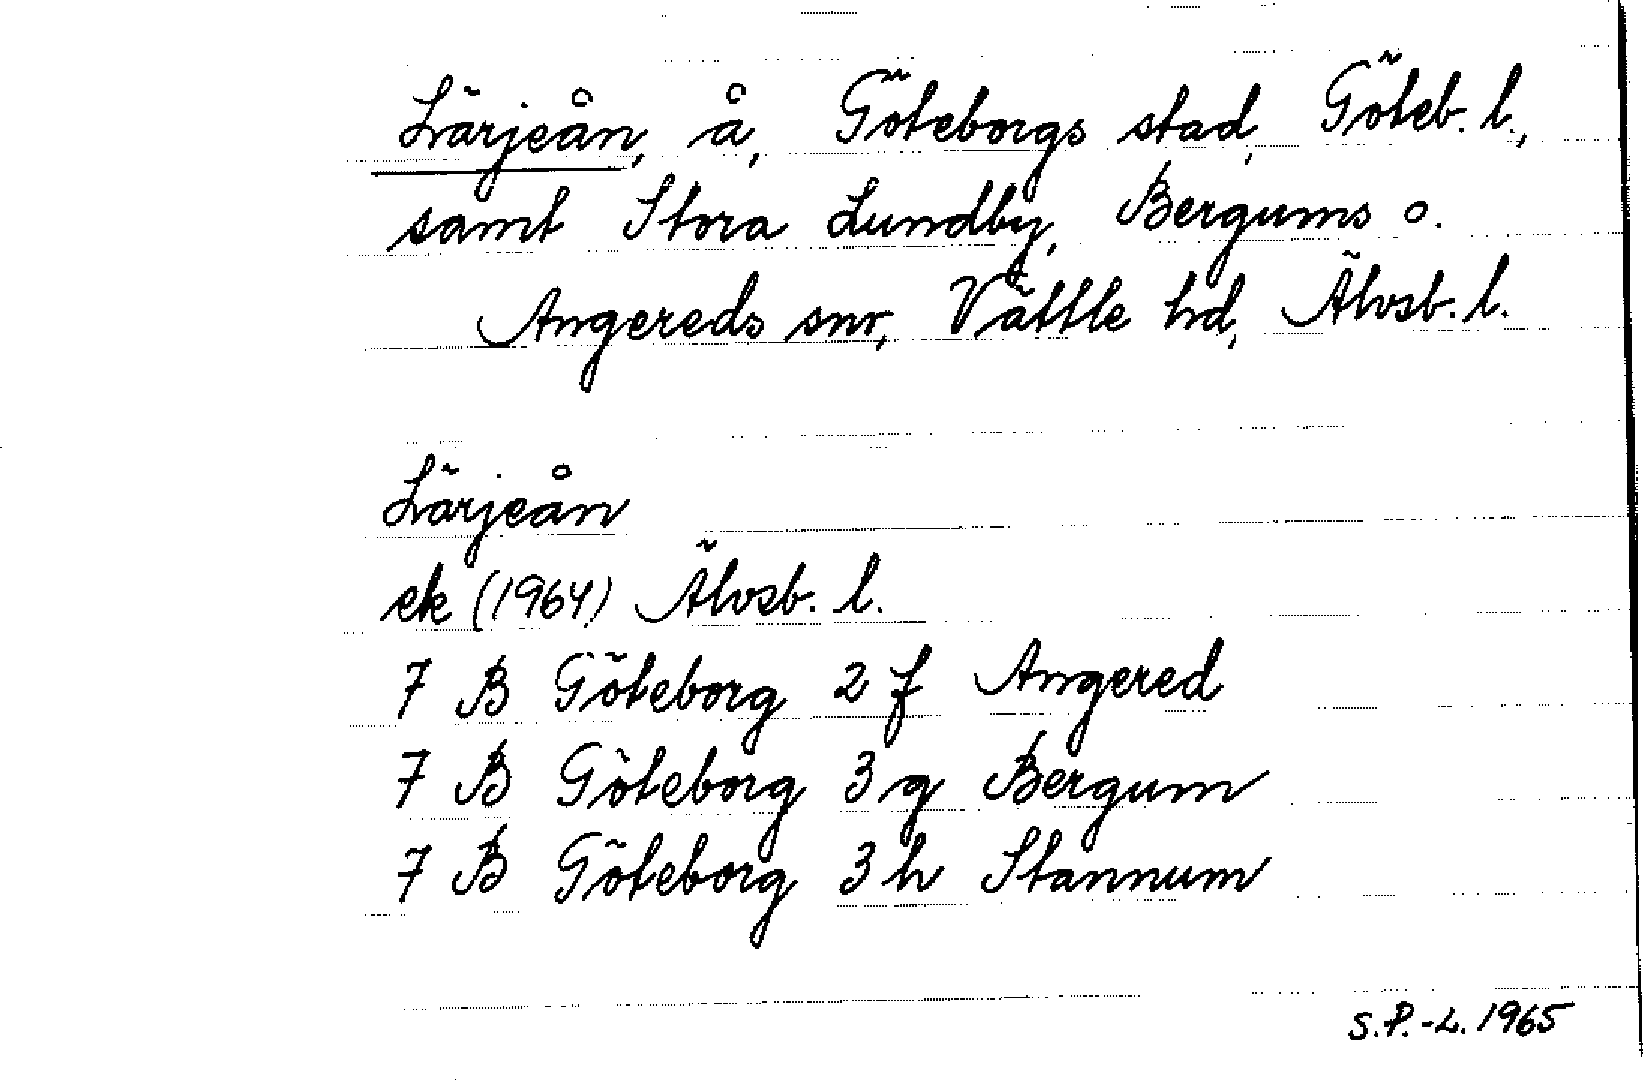 Lärjeån, å, Göteborgs stad, Göteb. l.,
samt Stora Lundby, Bergums o.
Angereds snr, Vättle hd, Älvsb. l.
Lärjeån
ek (1964) Älvsb. l.
7 B Göteborg 2 f Angered
7 B Göteborg 3 g Bergum
7 B Göteborg 3 h Stannum
S.P.-L. 1965